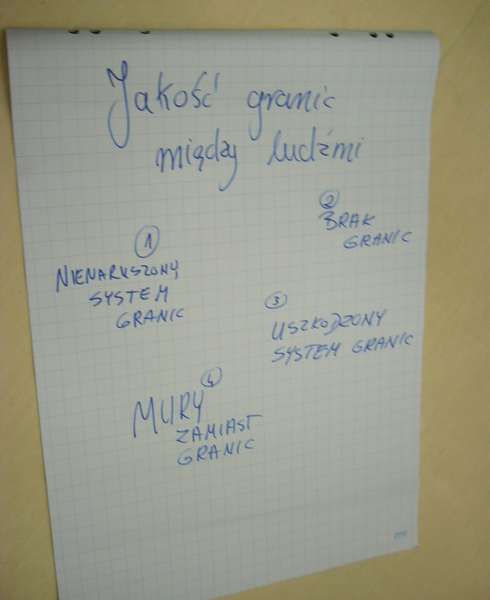 Jakość granic
między ludźmi
1
NIENARUSZONY
SYSTEM
GRANIC
2
BRAK
GRANIC
3
USZKODZONY
SYSTEM GRANIC
4
MURY
ZAMIAST
GRANIC